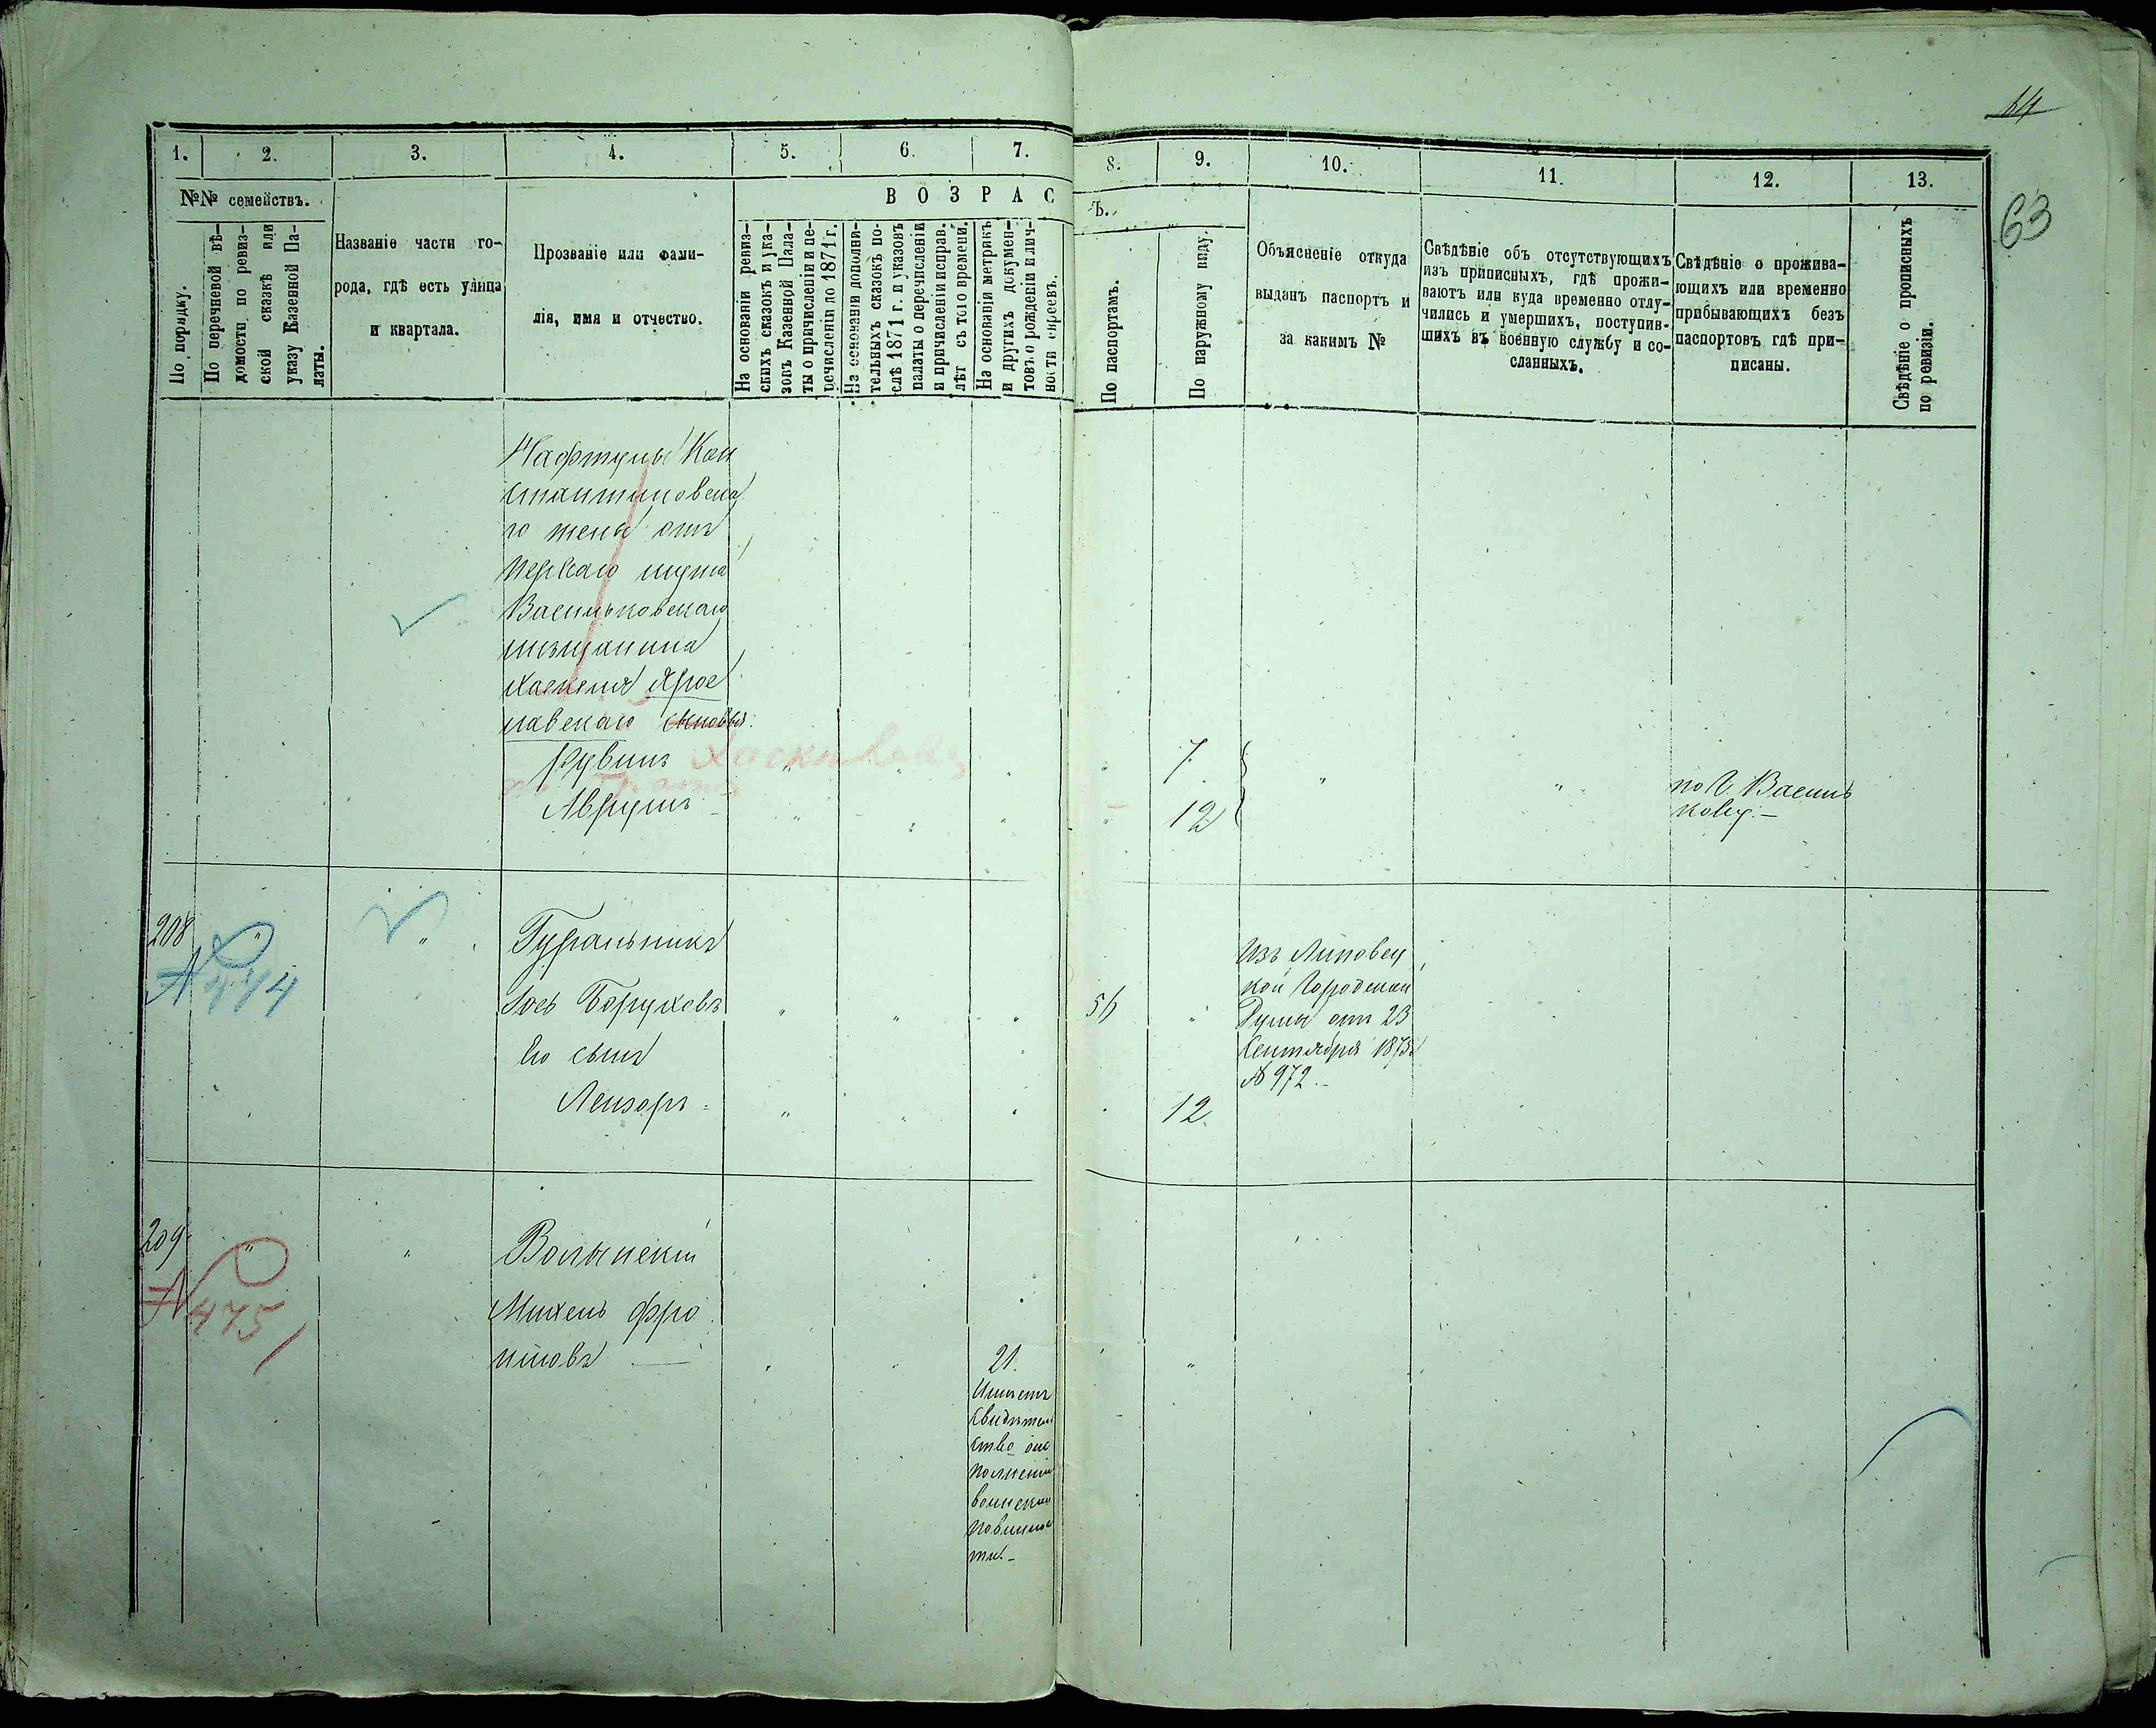 64
63
1. 2. 3. 4. 5. 6. 7. 8. 9. 10. 11. 12. 13.
№№ семействъ.
По порядку.
По перечневой вѣ-
домости по ревиз-
ской сказкѣ или
указу Казенной Па-
латы.
Названіе части го-
рода, гдѣ есть улица
и квартала.
Прозваніе или фами-
лія, имя и отчество.
ВОЗРАС
Ъ.
На основаніи ревиз-
скихъ сказокъ и ука-
зовъ Казенной Пала-
ты о причисленіи и пе-
речисленіи до 1871 г.
На основаніи дополни-
тельныхъ сказокъ по-
слѣ 1871 г. и указовъ
палаты о перечисленіи
и причисленіи исправ.
лѣт съ того времени.
На основаніи метрикъ
и другихъ докумен-
товъ о рожденіи и лич-
ности евреевъ.
По паспортамъ.
По наружному виду.
Объясненіе откуда
выданъ паспортъ и
за какимъ №
Свѣдѣніе объ отсутствующихъ
изъ приписныхъ, гдѣ прожи-
ваютъ или куда временно отлу-
чились и умершихъ, поступив-
шихъ въ военную службу и со-
сланныхъ.
Свѣдѣніе о прожива-
ющихъ или временно
прибывающихъ безъ
паспортовъ гдѣ при-
писаны.
Свѣдѣніе о прописныхъ
по ревизіи.
Нафтулы Кон
стантиновска
го жены отъ
перваго мужа
Васильковскаго
мѣщанина
Хаскеля Ярос
лавскаго сыновья
Рувинъ Хаскелевъ 7
Аврумъ 12
по г. Василь
кову.-
208
№ 474
Гуральникъ
Іось Боруховъ 56
Его сынъ
Лейзоръ 12.
Изъ Липовец
кой Городской
Думы отъ 23
Сентября 1873
№ 972.-
209
№ 475
Волынскій
Михель Фро
имовъ 21.
Имѣетъ
свидѣтель
ство о ис
полненіи
воинской
повиннос
ти.-